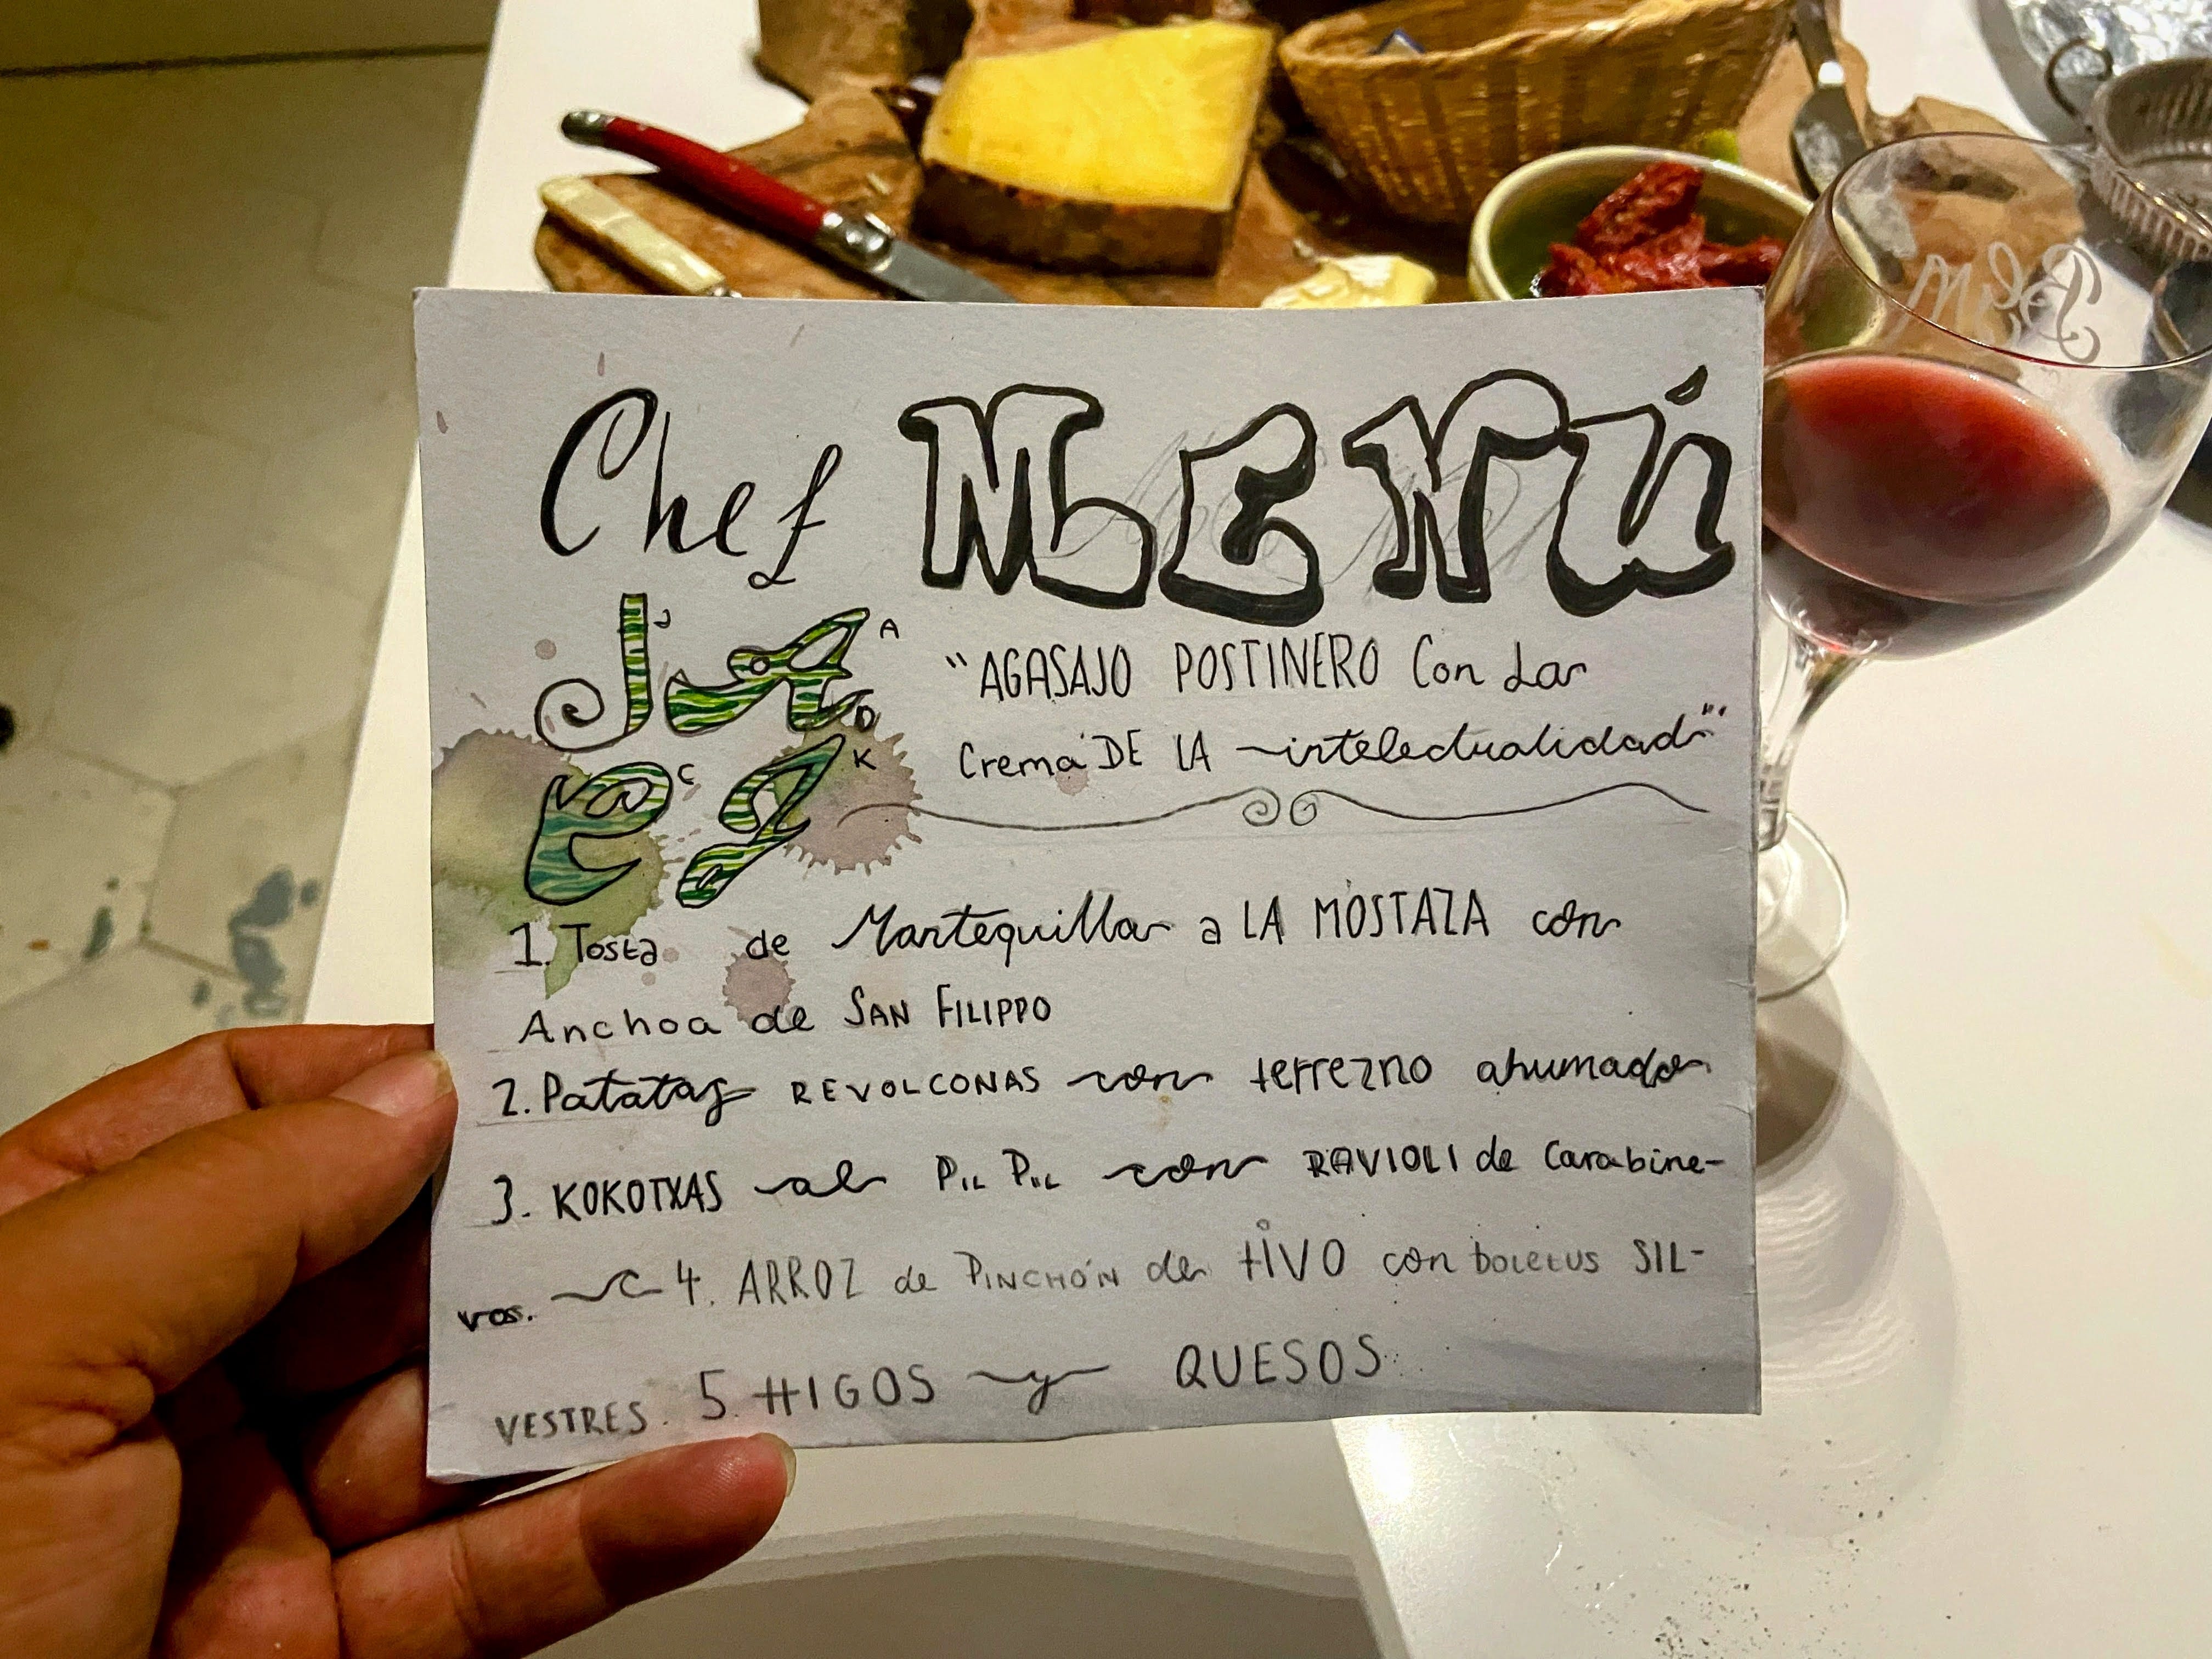 Chef MENÚ
JACK
"AGASAJO POSTINERO Con La
Crema DE LA intelectualidad"
1. Tosta de Mantequilla a LA MOSTAZA con
Anchoa de SAN FILIPPO
2. Patatas REVOLCONAS con terrezno ahumado
3. KOKOTXAS al PIL PIL con RAVIOLI de Carabine-
ros. 4. ARROZ de PINCHÓN de tiVO con boletus SIL-
VESTRES. 5. HIGOS y QUESOS